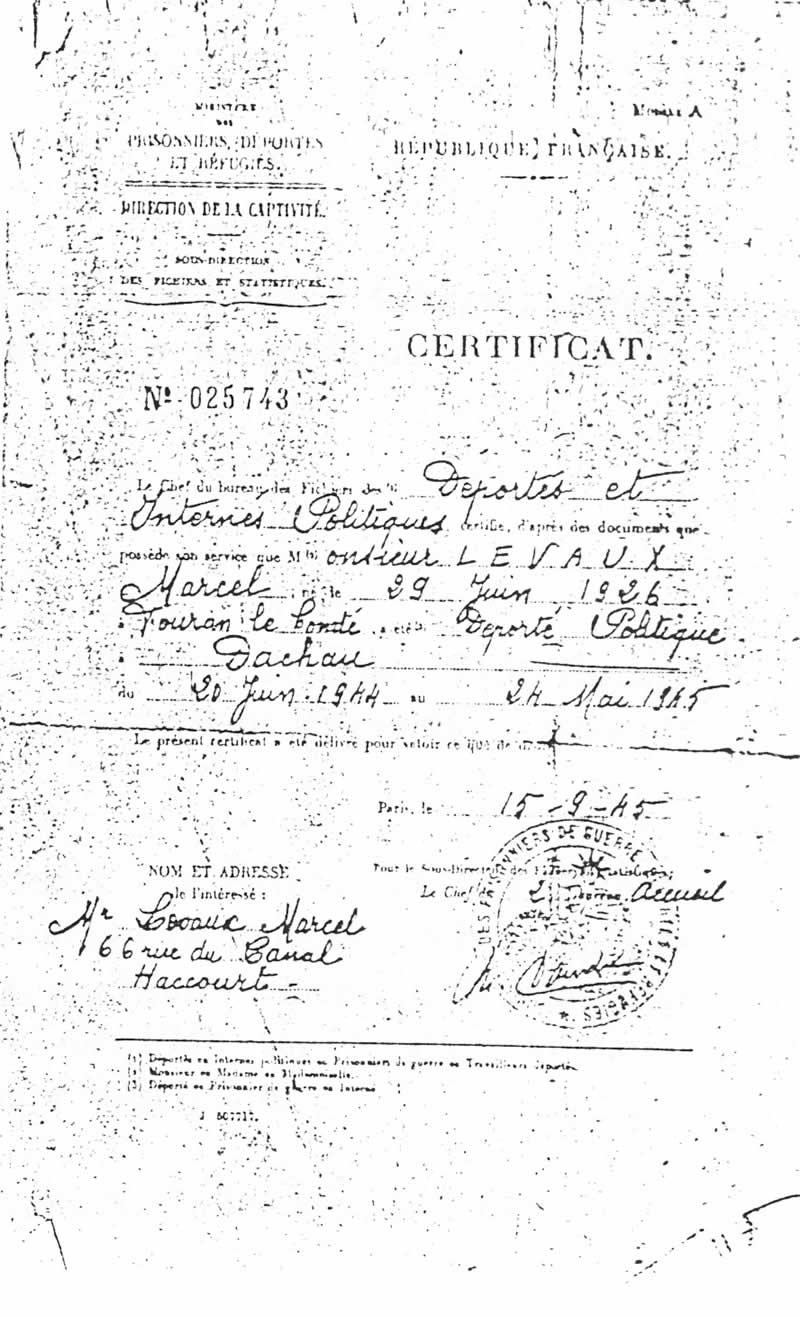 MINISTÈRE
DES
PRISONNIERS, DÉPORTÉS
ET RÉFUGIÉS.
DIRECTION DE LA CAPTIVITÉ.
SOUS-DIRECTION
DES FICHIERS ET STATISTIQUES.
MODÈLE A
RÉPUBLIQUE FRANÇAISE.
CERTIFICAT.
N° 025743
Le Chef du bureau des Fichiers des (1) Déportés et
Internés Politiques certifie, d'après des documents que
possède son service que M (2) onsieur LEVAUX
Marcel né le 29 Juin 1926
à Vouran le Comté a été (3) Déporté Politique
à Dachau
du 20 Juin 1944 au 24 Mai 1945
Le présent certificat a été délivré pour valoir ce que de droit.
Paris, le 15-9-45
NOM ET ADRESSE
de l'intéressé :
Mr Levaux Marcel
66 rue du Canal
Haccourt
Pour le Sous-Directeur des Fichiers et Statistiques;
Le Chef du 2 Bureau Accueil
DES PRISONNIERS DE GUERRE
(1) Déportés ou Internés politiques ou Prisonniers de guerre ou Travailleurs déportés.
(2) Monsieur ou Madame ou Mademoiselle.
(3) Déporté ou Prisonnier de guerre ou Interné